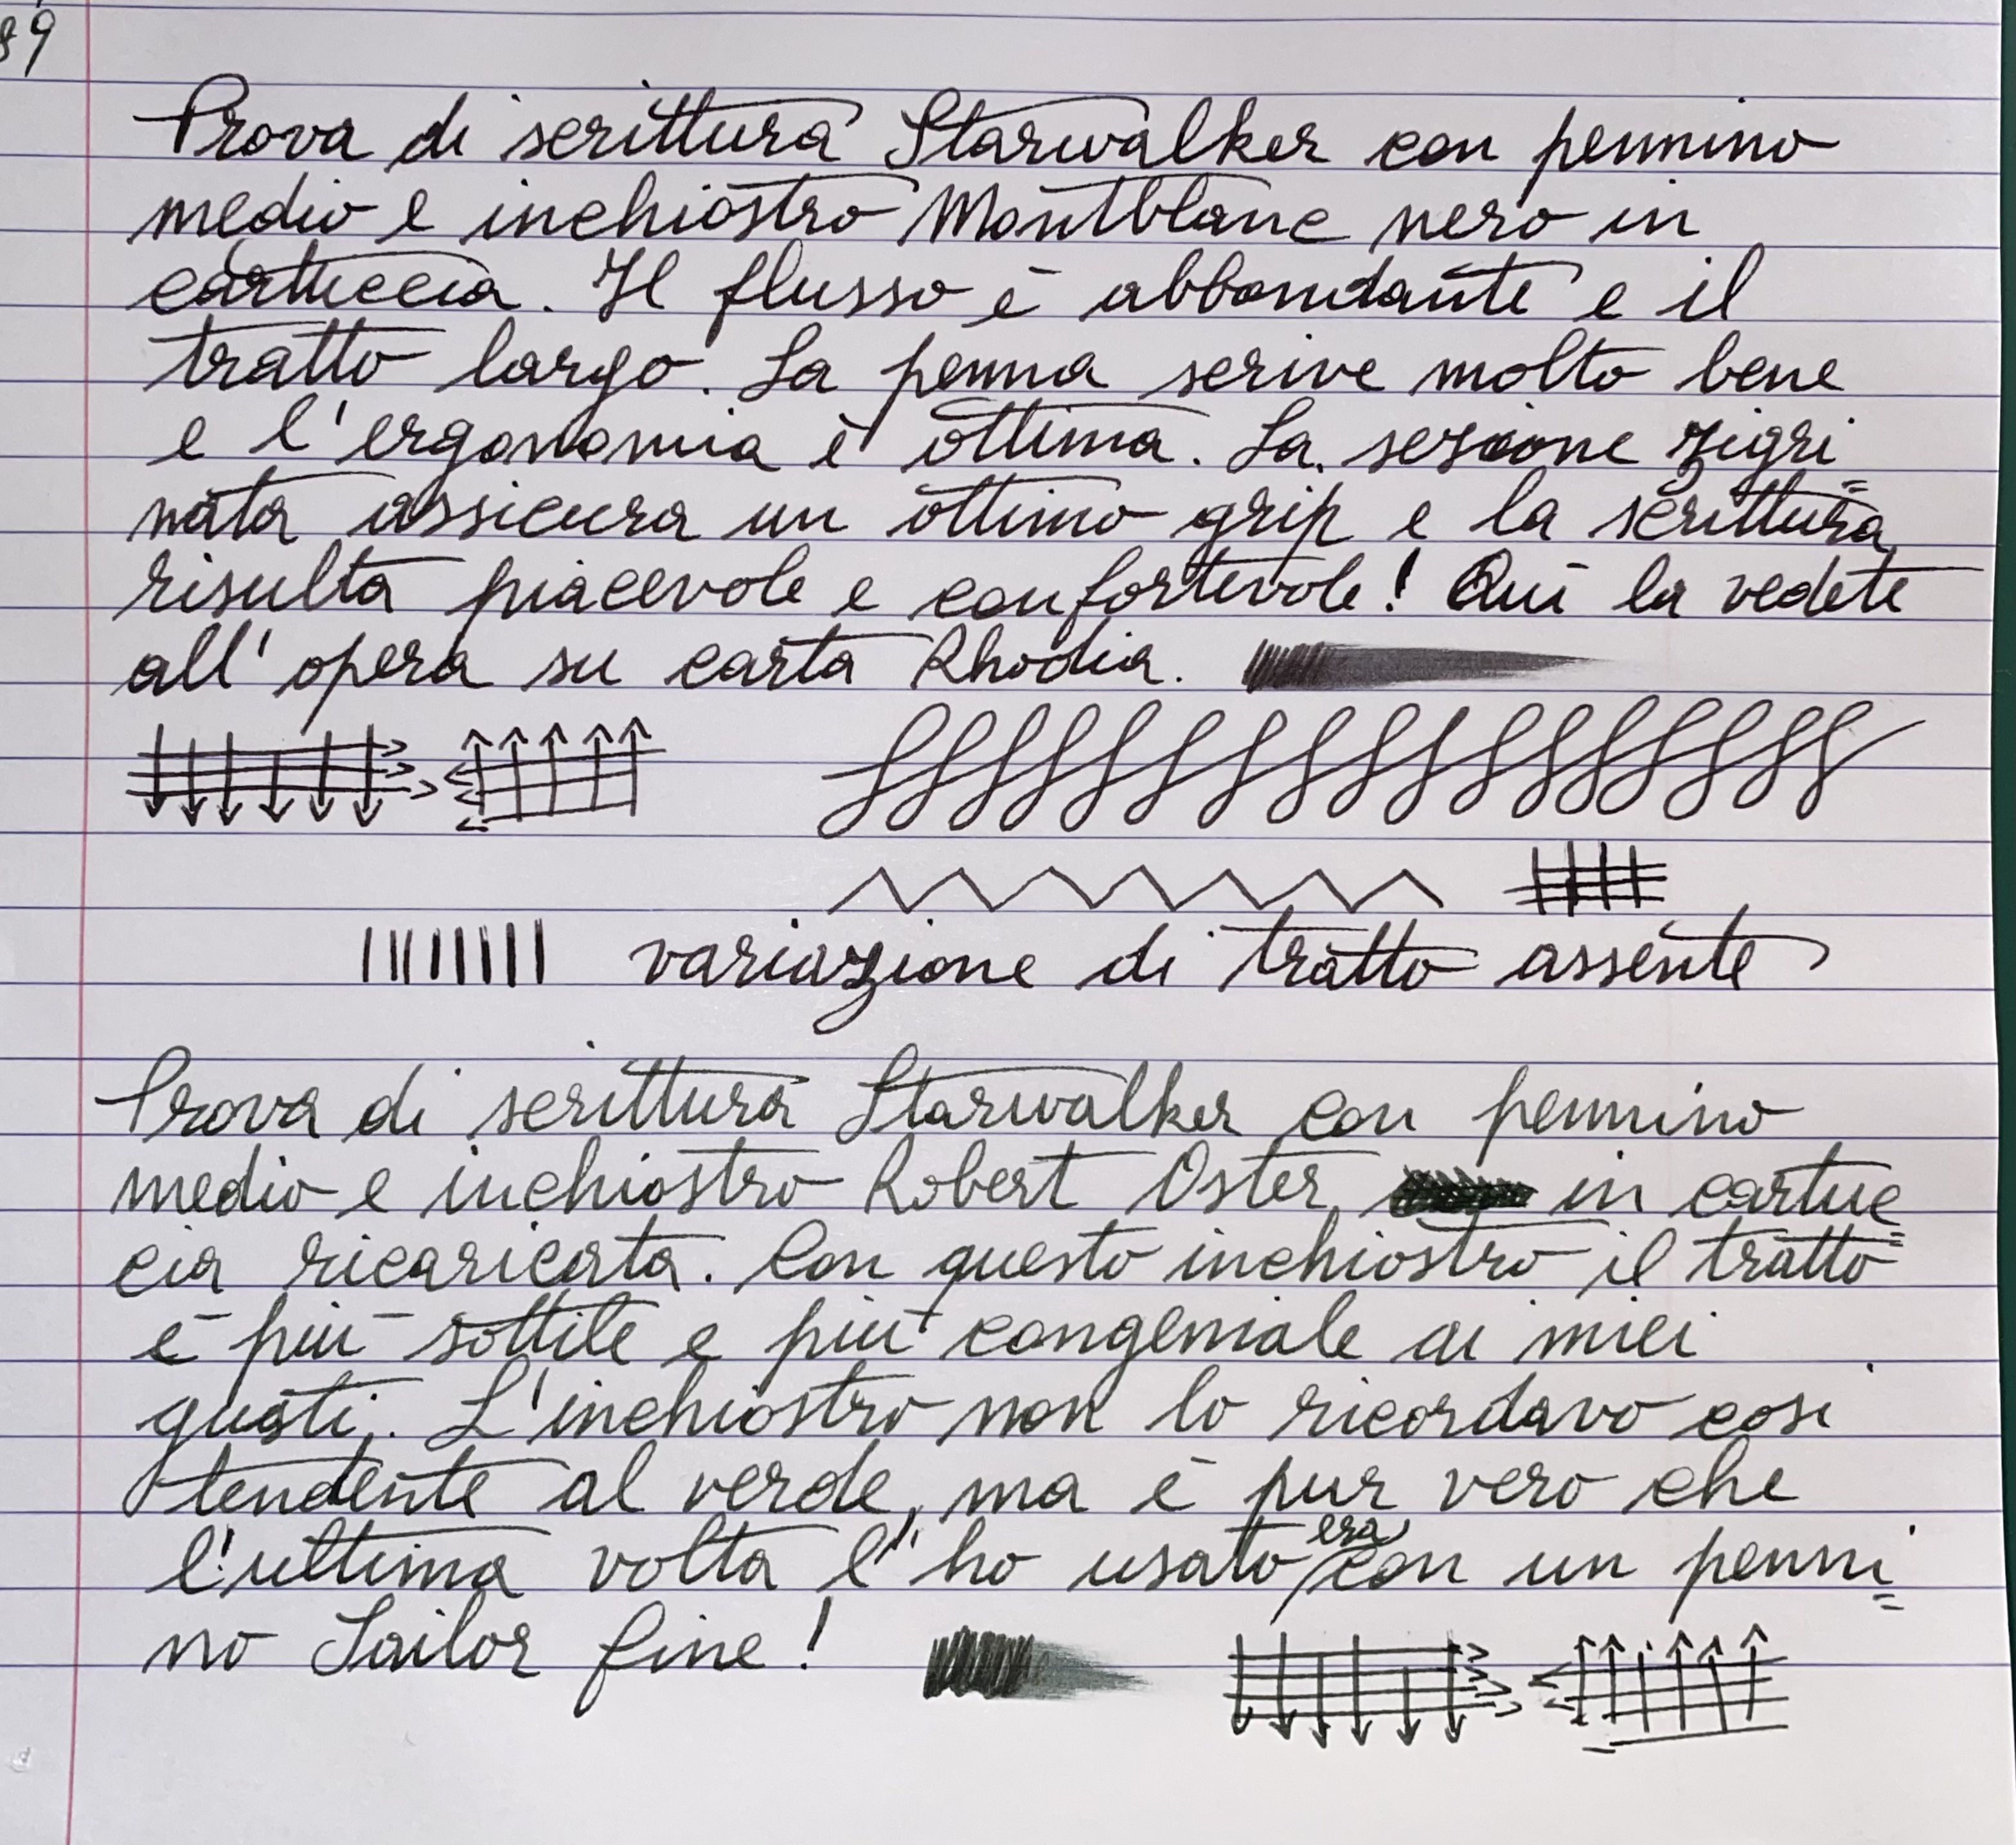 89
Prova di scrittura Starwalker con pennino
medio e inchiostro Montblanc nero in
cartuccia. Il flusso è abbondante e il
tratto largo. La penna scrive molto bene
e l'ergonomia è ottima. La sezione zigri=
nata assicura un ottimo grip e la scrittura
risulta piacevole e confortevole! Qui la vedete
all'opera su carta Rhodia.
variazione di tratto assente
Prova di scrittura Starwalker con pennino
medio e inchiostro Robert Oster in cartuc=
cia ricaricata. Con questo inchiostro il tratto
è più sottile e più congeniale ai miei
gusti. L'inchiostro non lo ricordavo così
tendente al verde, ma è pur vero che
l'ultima volta l'ho usato era con un penni=
no Sailor fine!